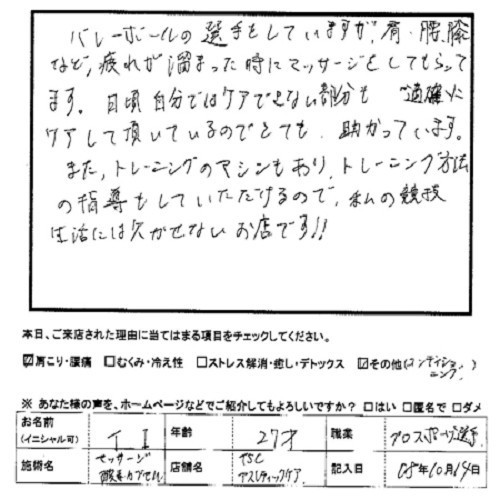 バレーボールの選手をしていますが、肩・腰・膝
など、疲れが溜まった時にマッサージをしてもらって
ます。日頃自分ではケアできない部分も 適確に
ケアして頂いているのでとても 助かっています。
また、トレーニングのマシンもあり、トレーニング方法
の指導もしていただけるので、私の競技
生活には欠かせないお店です!!
本日、ご来店された理由に当てはまる項目をチェックしてください。
☑肩こり・腰痛 □むくみ・冷え性 □ストレス解消・癒し・デトックス ☑その他(コンディショ
ニング)
※ あなた様の声を、ホームページなどでご紹介してもよろしいですか? □はい □匿名で □ダメ
お名前
(イニシャル可) イ I 年齢 27才 職業 プロスポーツ選手
施術名 マッサージ
酸素カプセル 店舗名 TSC
アスレティックケア 記入日 08年10月14日